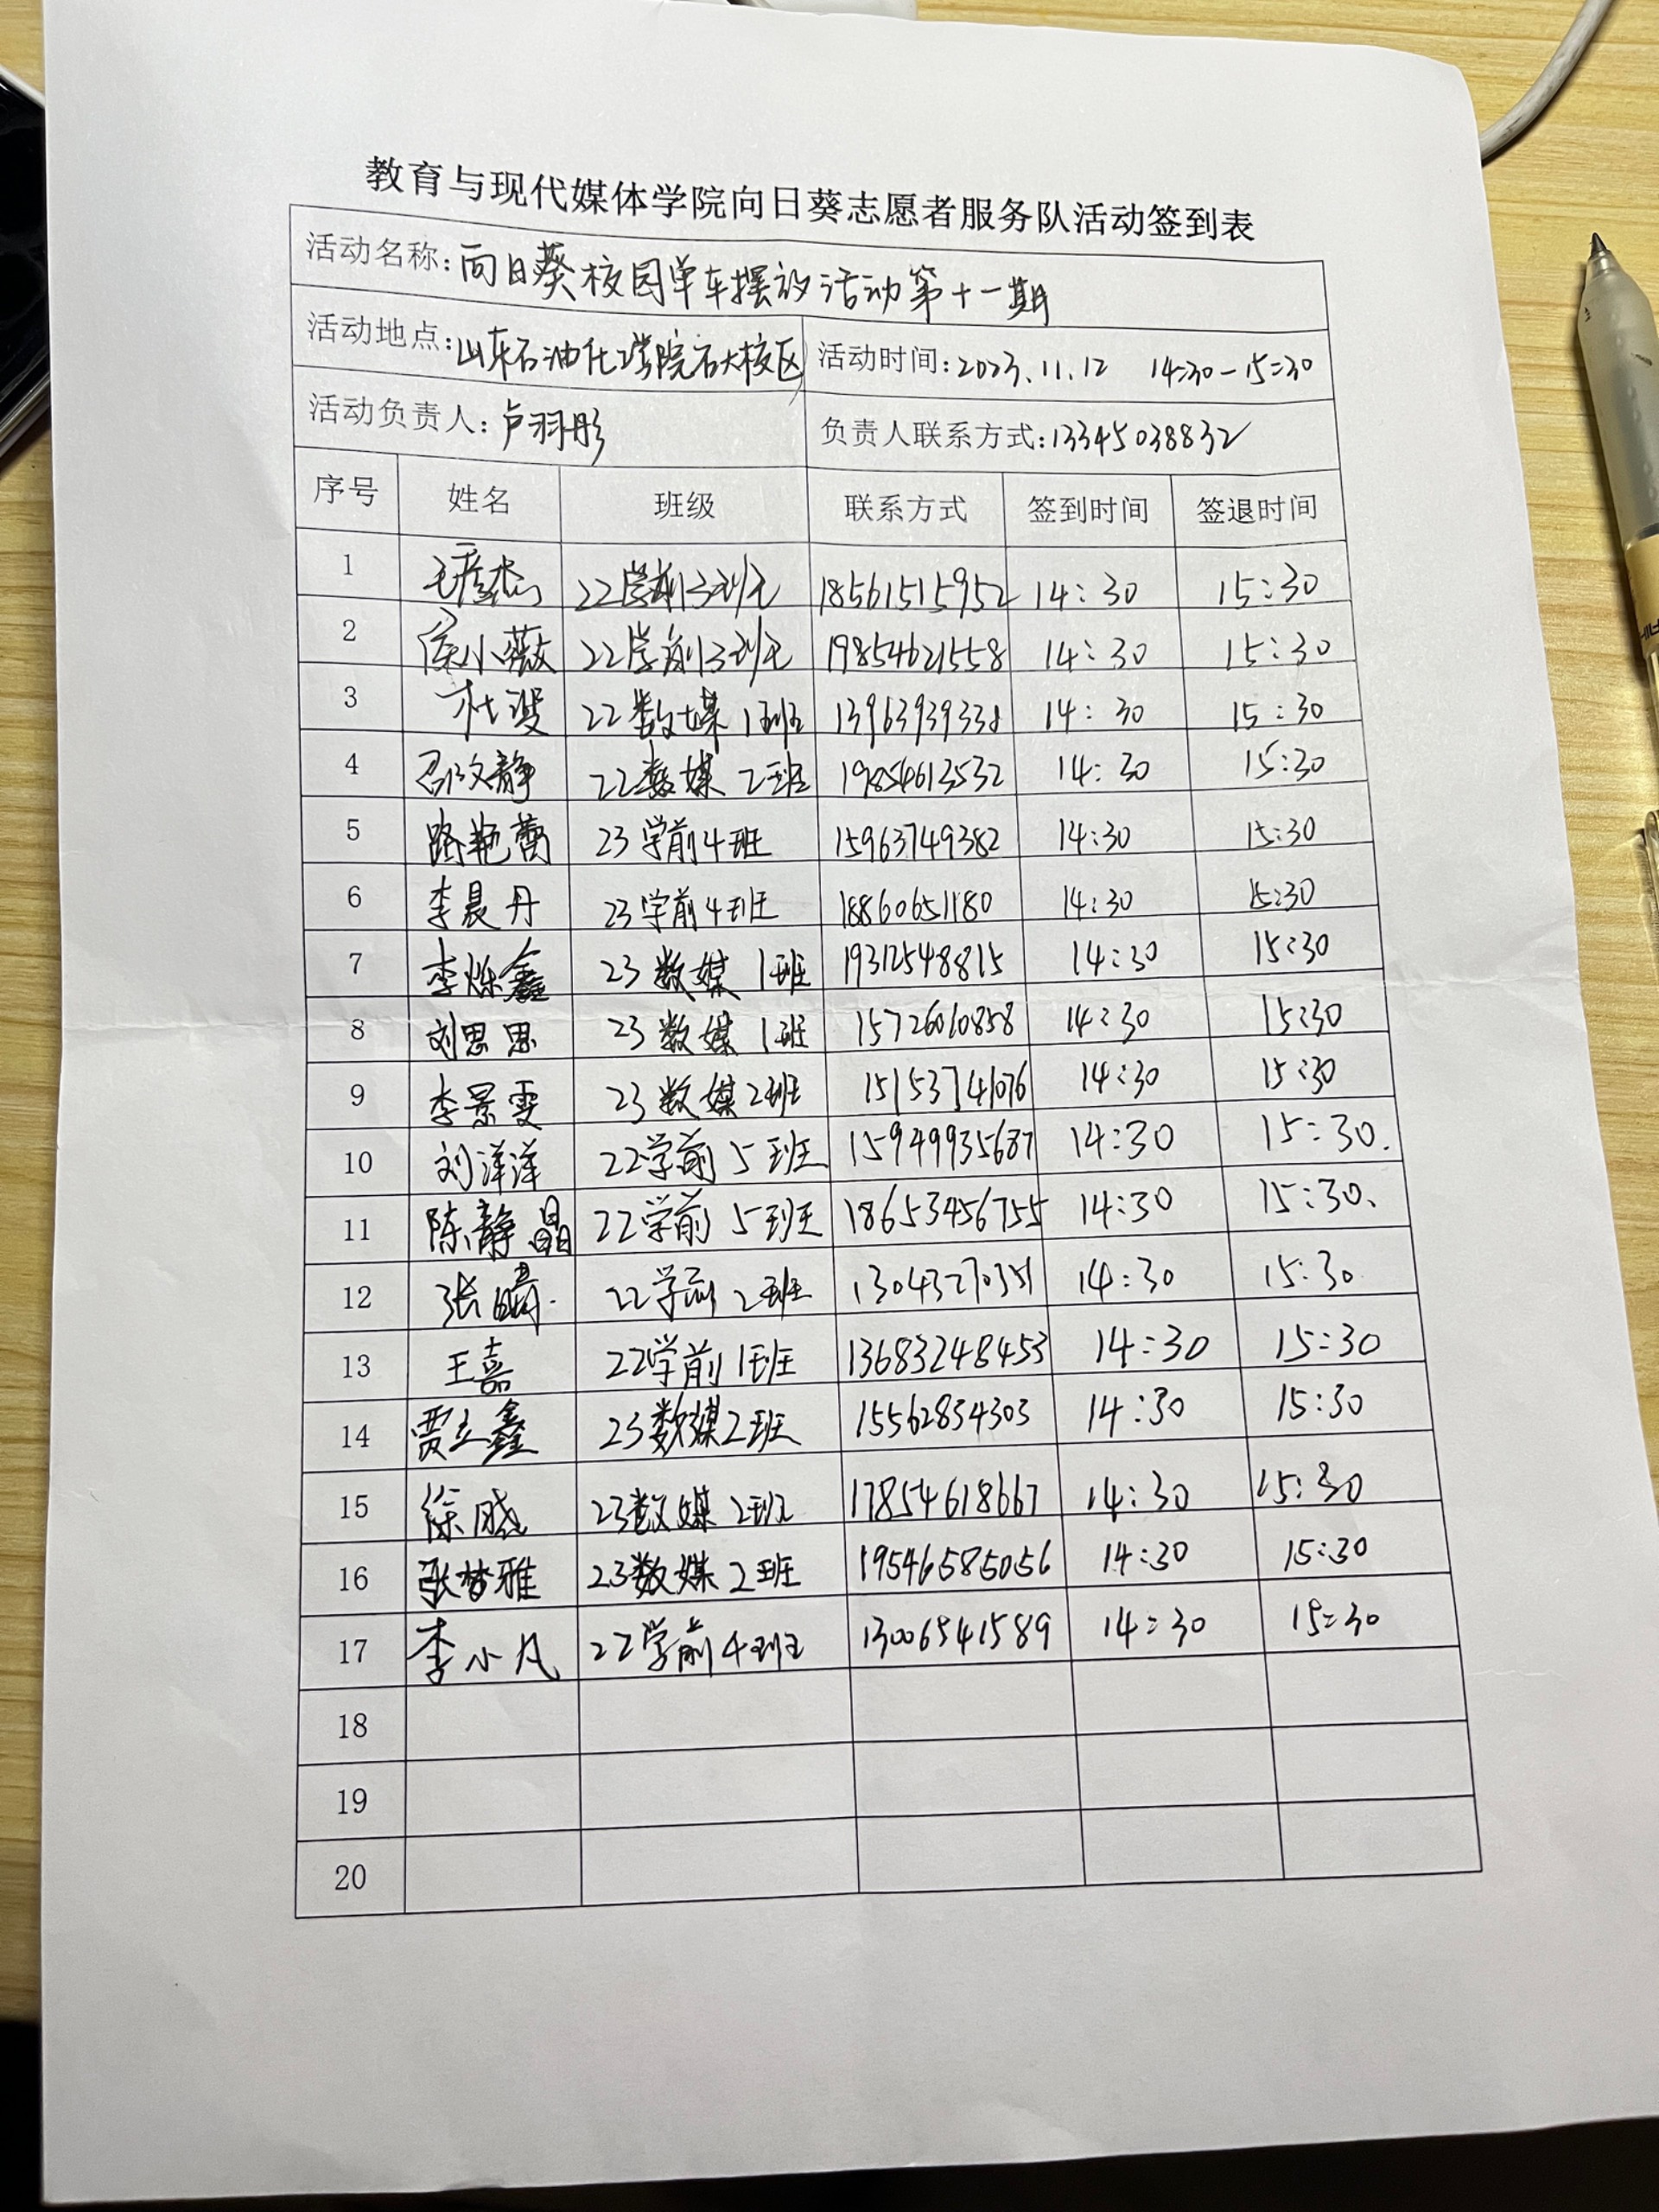 教育与现代媒体学院向日葵志愿者服务队活动签到表
活动名称:向日葵校园单车摆放活动第十一期
活动地点:山东石油化工学院石大校区 活动时间:2023.11.12 14:30-15:30
活动负责人:卢羽彤 负责人联系方式:13345038832
序号 姓名 班级 联系方式 签到时间 签退时间
1 22学前3班 18561515952 14:30 15:30
2 徐小薇 22学前3班 19854621558 14:30 15:30
3 22数媒1班 13963939338 14:30 15:30
4 邵文静 22数媒2班 19854613532 14:30 15:30
5 路艳蕾 23学前4班 15963749382 14:30 15:30
6 李晨丹 23学前4班 18860651180 14:30 15:30
7 李烁鑫 23数媒1班 19312548815 14:30 15:30
8 刘思思 23数媒1班 15726060858 14:30 15:30
9 李景雯 23数媒2班 15153741076 14:30 15:30
10 刘洋洋 22学前5班 15949935687 14:30 15:30.
11 陈静晶 22学前5班 18653456755 14:30 15:30、
12 22学前2班 13043270351 14:30 15:30
13 王嘉 22学前1班 13683248453 14:30 15:30
14 贾立鑫 23数媒2班 15562854303 14:30 15:30
15 徐晓 23数媒2班 17854618667 14:30 15:30
16 张梦雅 23数媒2班 19546585056 14:30 15:30
17 李小凡 22学前4班 13006541589 14:30 15:30
18
19
20